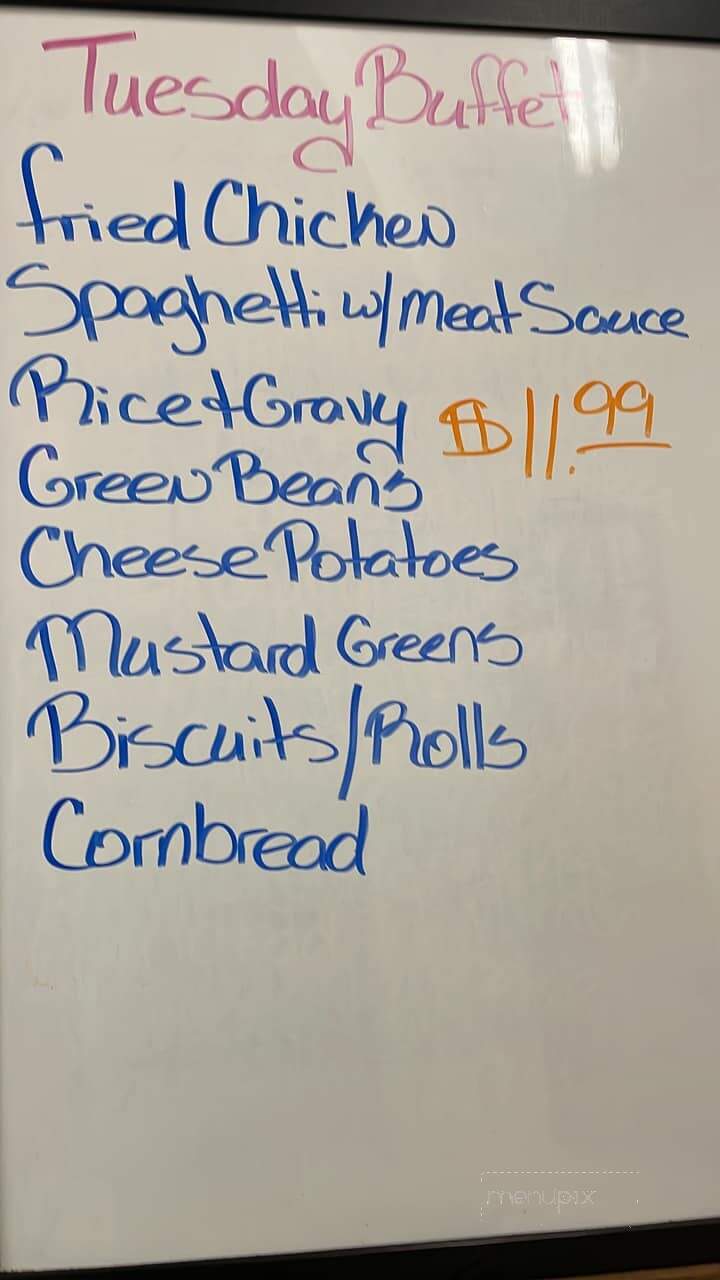 Tuesday Buffet
Fried Chicken
Spaghetti w/ Meat Sauce
Rice & Gravy $11.99
Green Beans
Cheese Potatoes
Mustard Greens
Biscuits/Rolls
Cornbread
menupix